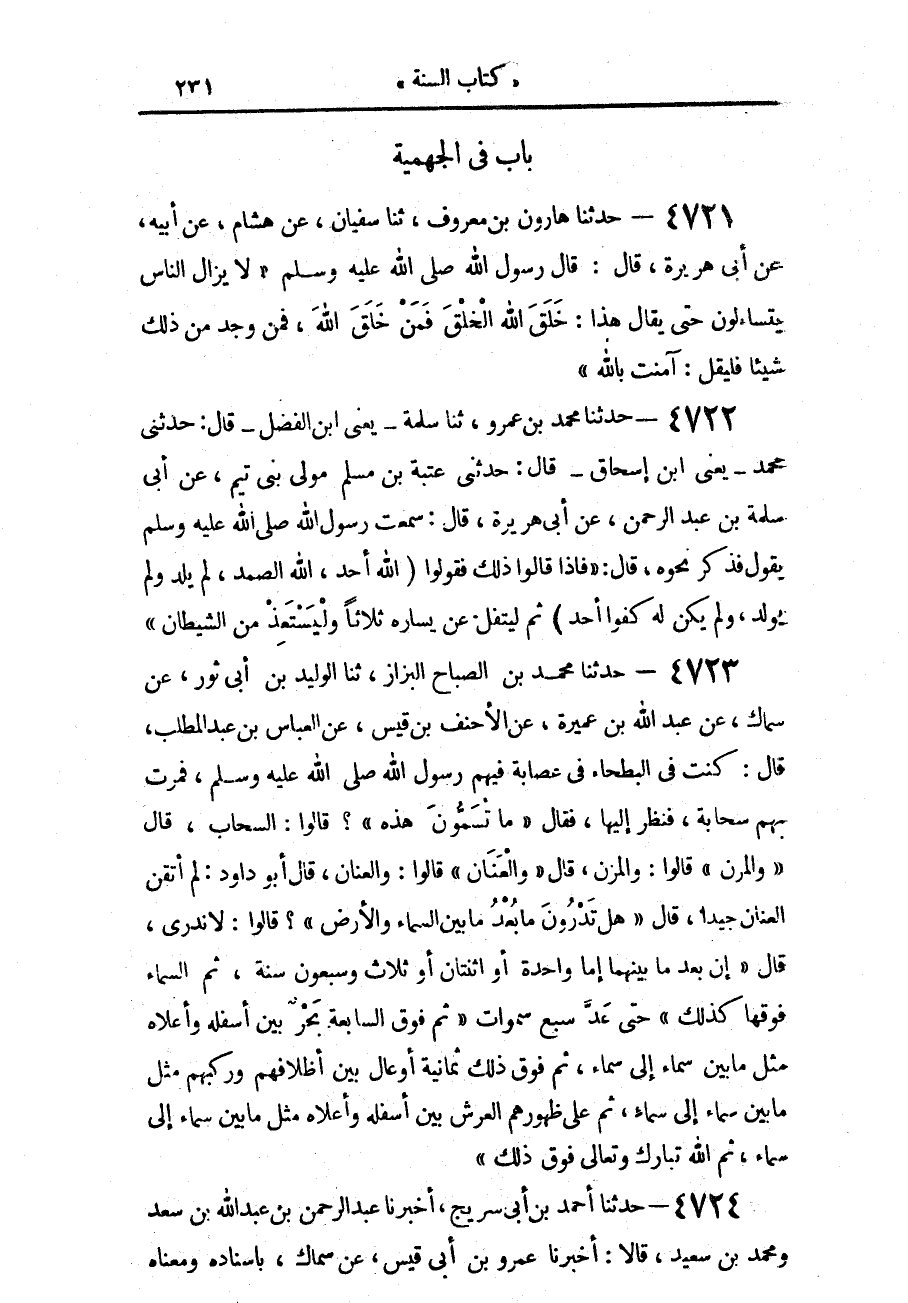 « كتاب السنة » ٢٣١
باب فى الجهمية
٤٧٢١ — حدثنا هارون بن معروف ، ثنا سفيان ، عن هشام ، عن أبيه،
عن أبى هريرة ، قال : قال رسول الله صلى الله عليه وسلم « لا يزال الناس
يتساءلون حتى يقال هذا : خَلَقَ الله الْخلْقَ فَمَنْ خَلَقَ اللهَ ، فمن وجد من ذلك
شيئا فليقل : آمنت بالله »
٤٧٢٢ — حدثنا محمد بن عمرو ، ثنا سلمة ـ يعنى ابن الفضل ـ قال: حدثنى
محمد ـ يعنى ابن إسحاق ـ قال : حدثنى عتبة بن مسلم مولى بنى تيم ، عن أبى
سلمة بن عبد الرحمن ، عن أبى هريرة ، قال : سمعت رسول الله صلى الله عليه وسلم
يقول فذكر نحوه ، قال: «فاذا قالوا ذلك فقولوا ( الله أحد ، الله الصمد ، لم يلد ولم
يولد ، ولم يكن له كفوا أحد ) ثم ليتفل عن يساره ثلاثاً ولْيَسْتَعِذْ من الشيطان »
٤٧٢٣ — حدثنا محمد بن الصباح البزاز ، ثنا الوليد بن أبى ثور ، عن
سماك ، عن عبد الله بن عميرة ، عن الأحنف بن قيس ، عن العباس بن عبد المطلب،
قال : كنت فى البطحاء فى عصابة فيهم رسول الله صلى الله عليه وسلم ، فمرت
بهم سحابة ، فنظر إليها ، فقال « ما تُسَمُّونَ هذه » ؟ قالوا : السحاب ، قال
« والمزن » قالوا : والمزن ، قال « والْعَنَان » قالوا : والعنان ، قال أبو داود : لم أتقن
العنان جيدا ، قال « هل تَدْرُونَ ما بُعْدُ ما بين السماء والأرض » ؟ قالوا : لا ندرى ،
قال « إن بعد ما بينهما إما واحدة أو اثنتان أو ثلاث وسبعون سنة ، ثم السماء
فوقها كذلك » حتى عَدَّ سبع سموات « ثم فوق السابعة بَحْرٌ بين أسفله وأعلاه
مثل مابين سماء إلى سماء ، ثم فوق ذلك ثمانية أوعال بين أظلافهم وركبهم مثل
مابين سماء إلى سماء ، ثم على ظهورهم العرش بين أسفله وأعلاه مثل مابين سماء إلى
سماء ، ثم الله تبارك وتعالى فوق ذلك »
٤٧٢٤ — حدثنا أحمد بن أبى سريج ، أخبرنا عبد الرحمن بن عبد الله بن سعد
ومحمد بن سعيد ، قالا : أخبرنا عمرو بن أبى قيس ، عن سماك ، باسناده ومعناه